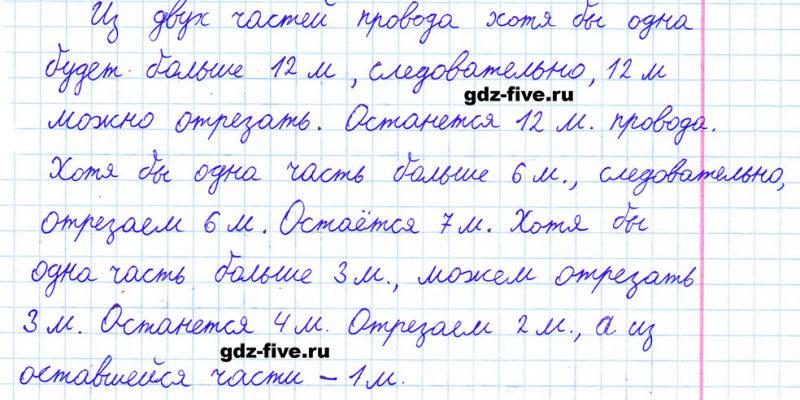 Из двух частей провода хотя бы одна
будет больше 12 м, следовательно, 12 м
gdz-five.ru
можно отрезать. Останется 12 м. провода.
Хотя бы одна часть больше 6 м., следовательно,
отрезаем 6 м. Остаётся 7 м. Хотя бы
одна часть больше 3 м., можем отрезать
3 м. Останется 4 м. Отрезаем 2 м., а из
gdz-five.ru
оставшейся части – 1 м.